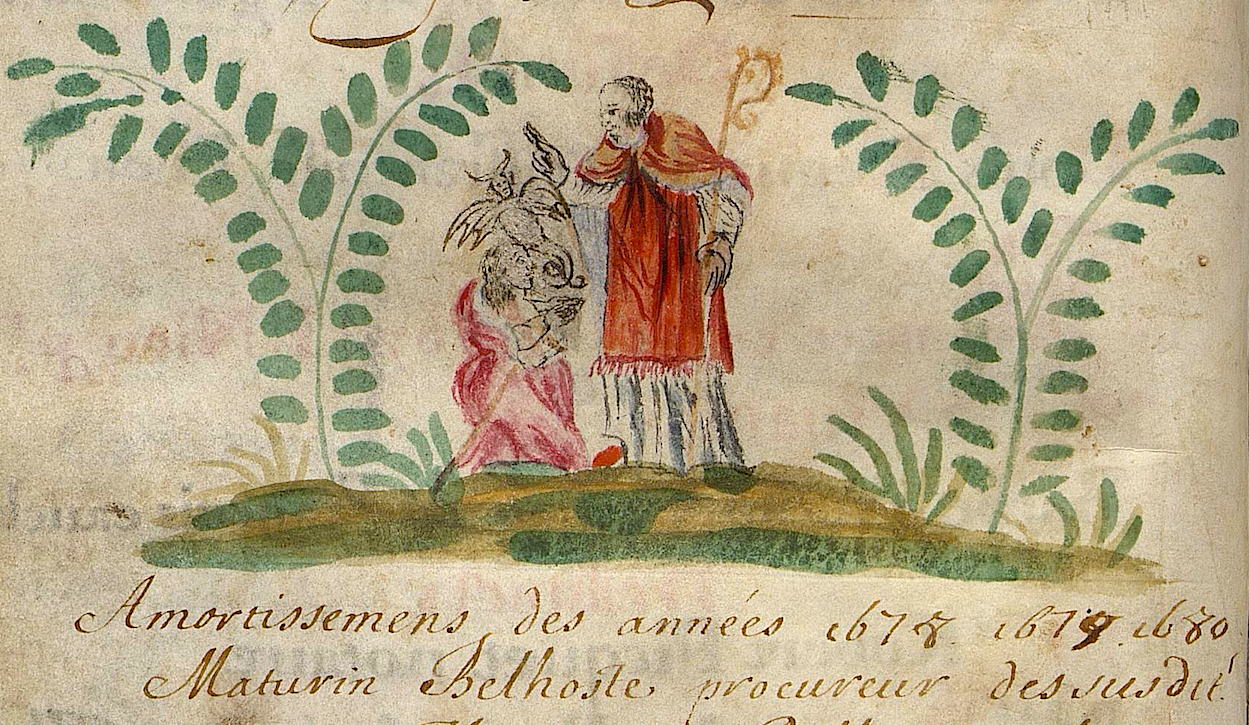 Amortissemens des années 1678 1679 1680
Maturin Belhoste procureur dessusdit